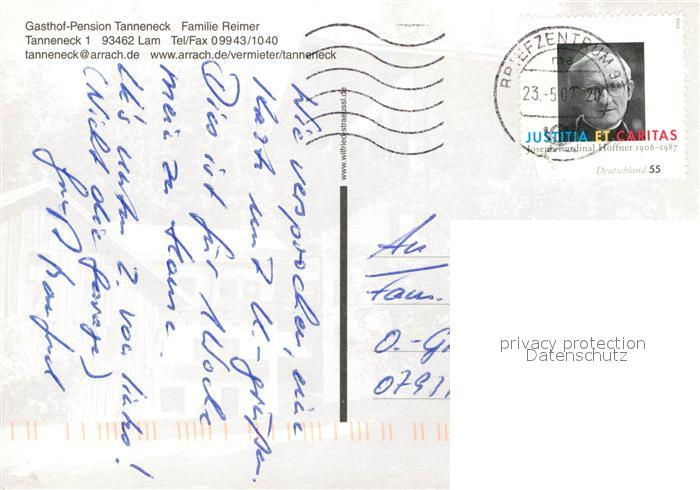 Gasthof-Pension Tanneneck Familie Reimer
Tanneneck 1 93462 Lam Tel/Fax 09943/1040
tanneneck@arrach.de www.arrach.de/vermieter/tanneneck
Wie versprochen, eine
Karte und U-grüße.
Dies ist für 1 Woche
mein zu Hause.
Bis unten 2. von links!
(Nicht die Garage)
Gruß Manfred
www.wilfried-straeussl.de
BRIEFZENTRUM
ma
23.-5.07
JUSTITIA ET CARITAS
Joseph Kardinal Höffner 1906-1987
Deutschland 55
An
Fam.
O.-G
0793
privacy protection
Datenschutz